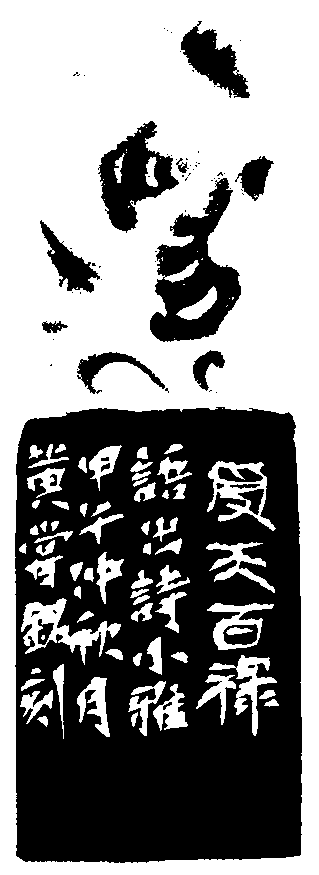 受天百祿
語出詩小雅
甲午仲秋月
黃嘗銘刻